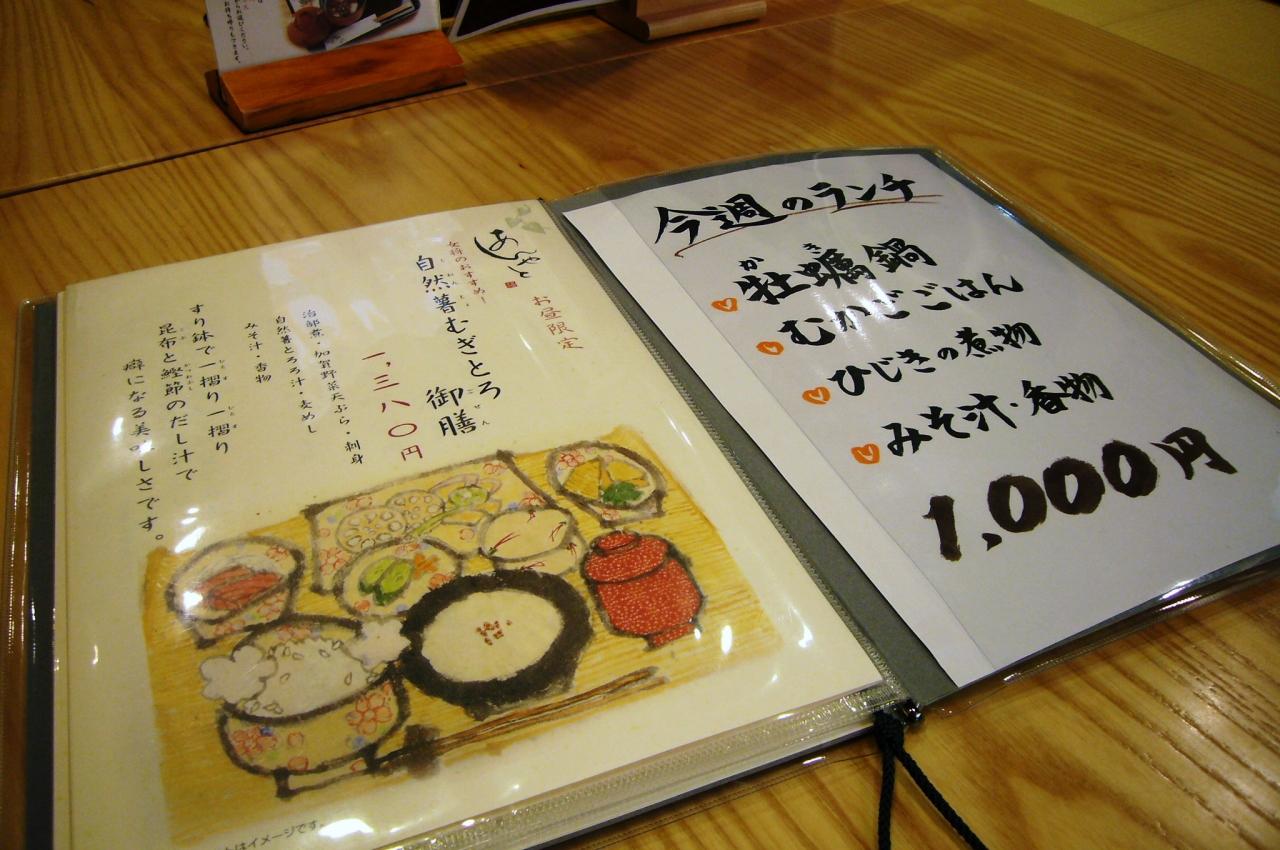 あんやと
お昼限定
女将のおすすめ!
自然薯むぎとろ御膳
じねんじょ
ごぜん
一,三八〇円
治部煮・加賀野菜天ぷら・刺身
自然薯とろろ汁・麦めし
みそ汁・香物
すり鉢で一摺り一摺り
昆布と鰹節のだし汁で
癖になる美味しさです。
はイメージです。
今週のランチ
かき
牡蠣鍋
むかごごはん
ひじきの煮物
みそ汁・香物
1,000円